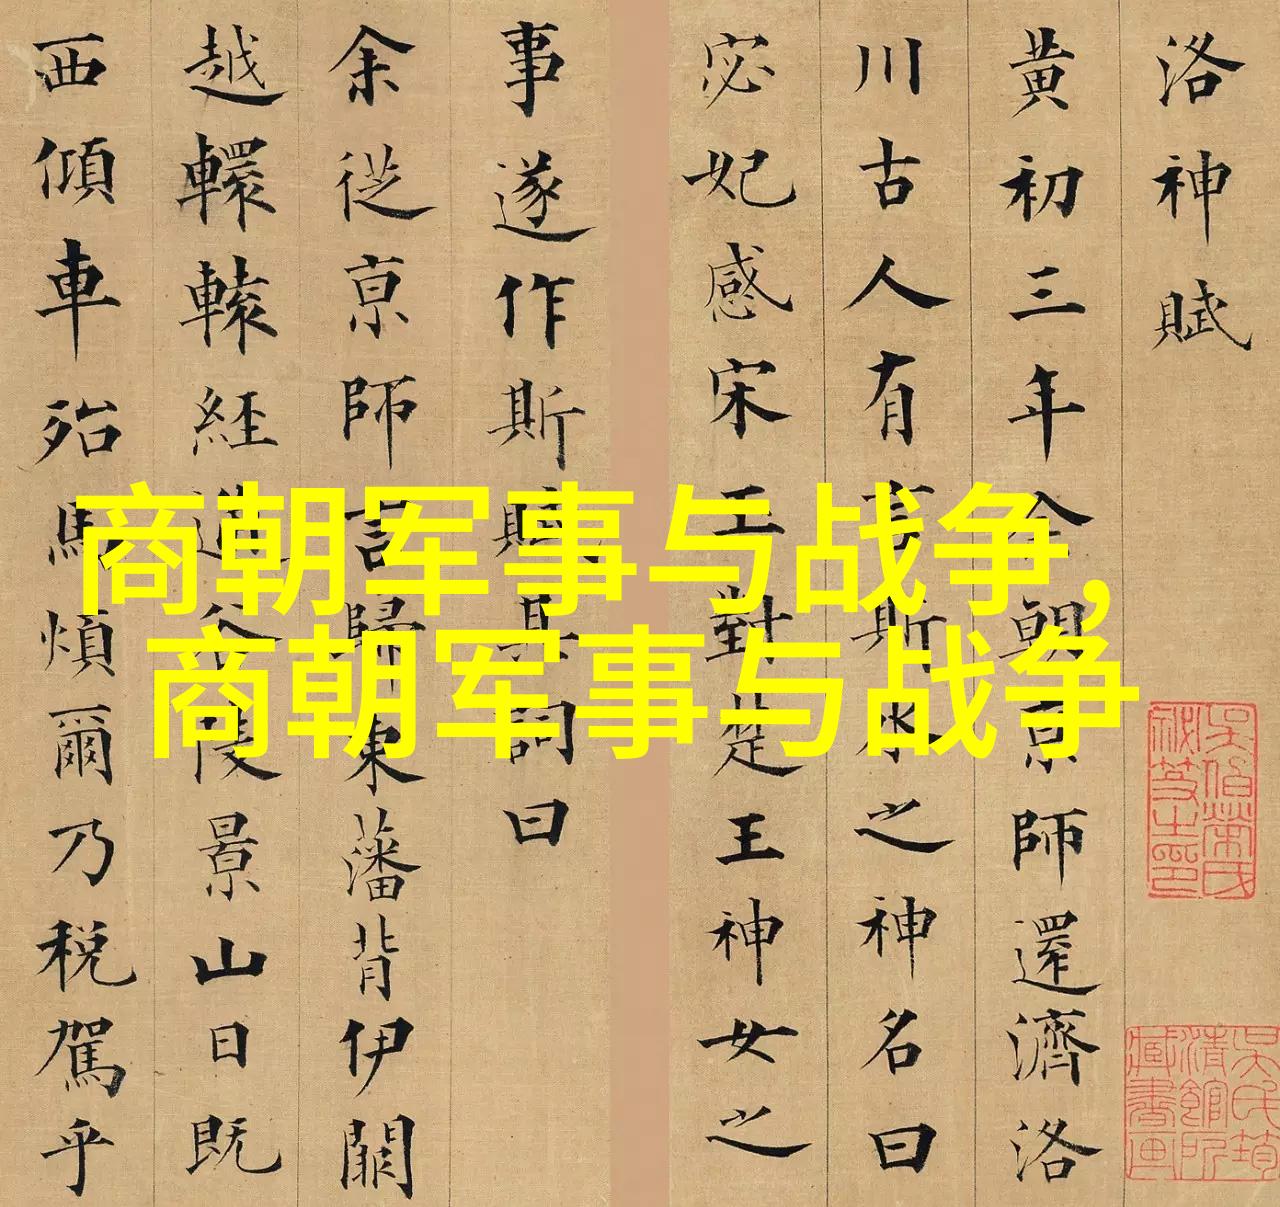 商朝军事与战争，
商朝军事与战争
洛神賦
黃初三年余朝京師還濟洛
川古人有言斯水之神名曰
宓妃感宋玉對楚王神女之
事遂作斯賦其詞曰
余從京師言歸東藩背伊闕
越轘轅經通谷陵景山日既
西傾車殆馬煩爾乃稅駕乎